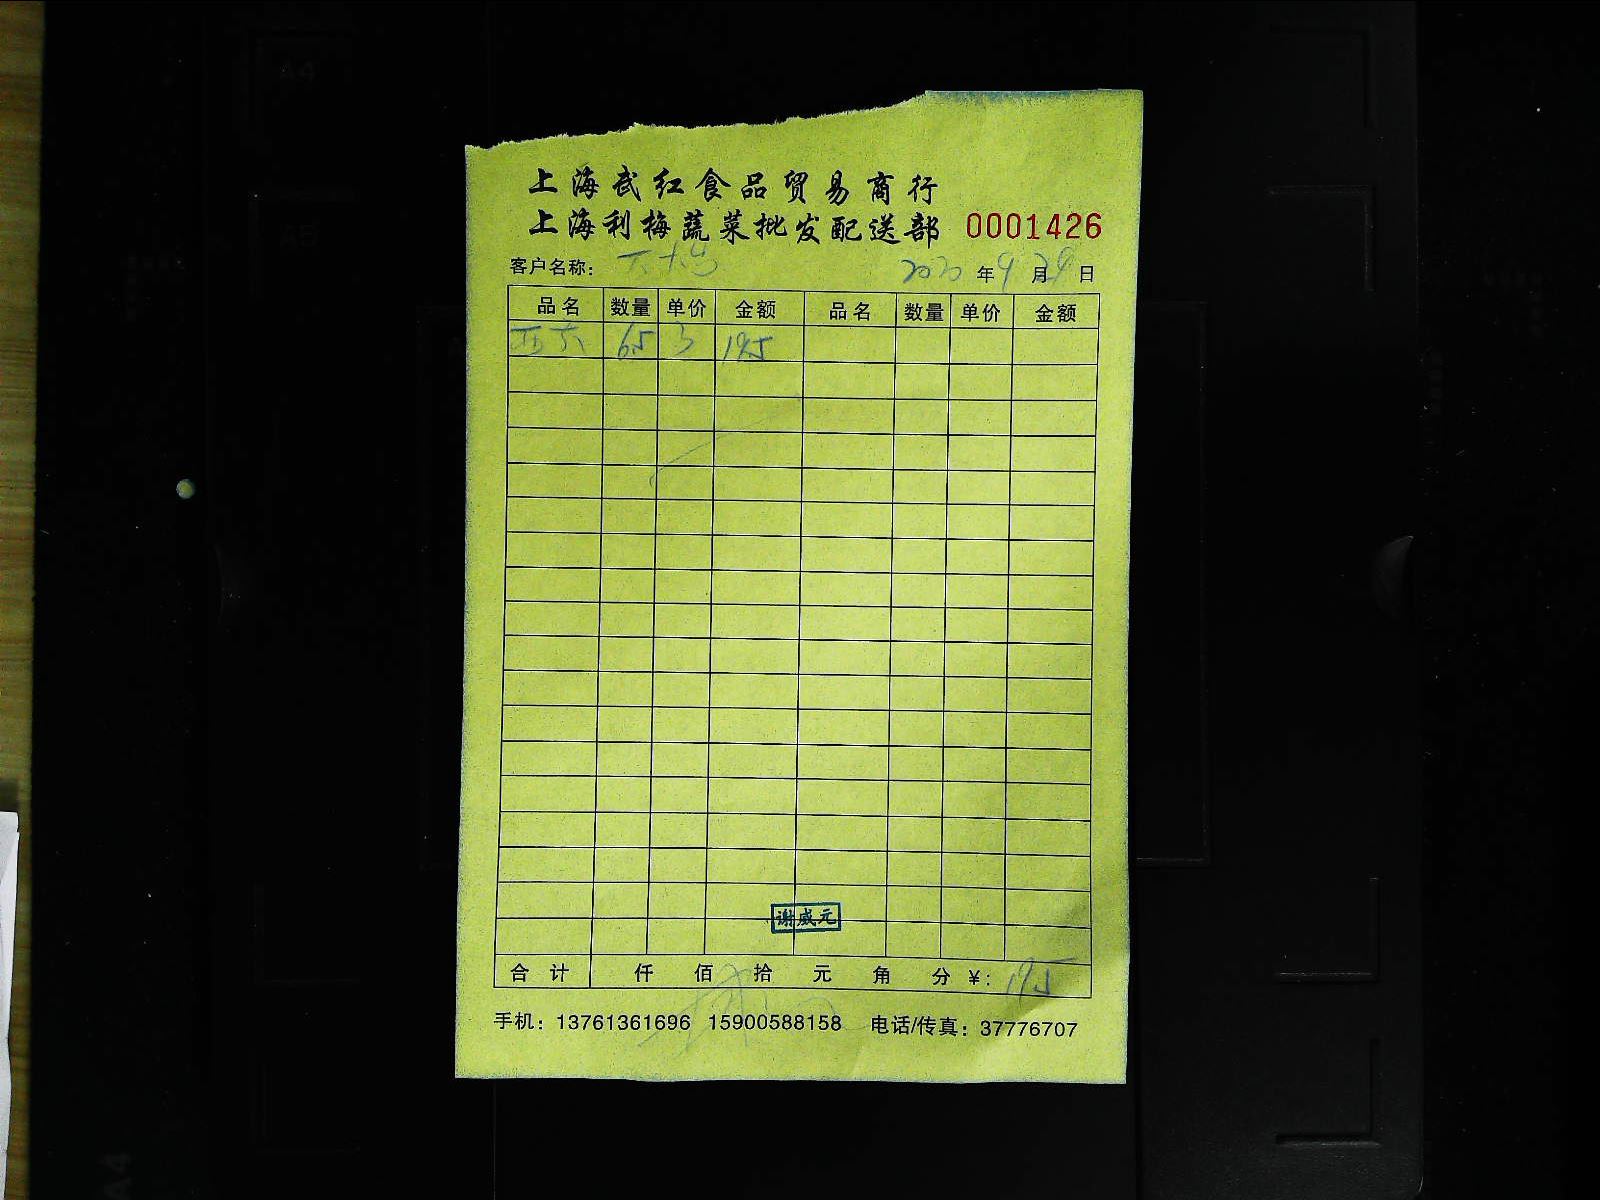 上海武红食品贸易商行
上海利梅蔬菜批发配送部 0001426
客户名称: 2020年9月29日
品名 数量 单价 金额 品名 数量 单价 金额
65 3 195
谢威元
合计 仟 佰 拾 元 角 分 ¥: 195
手机: 13761361696 15900588158 电话/传真: 37776707